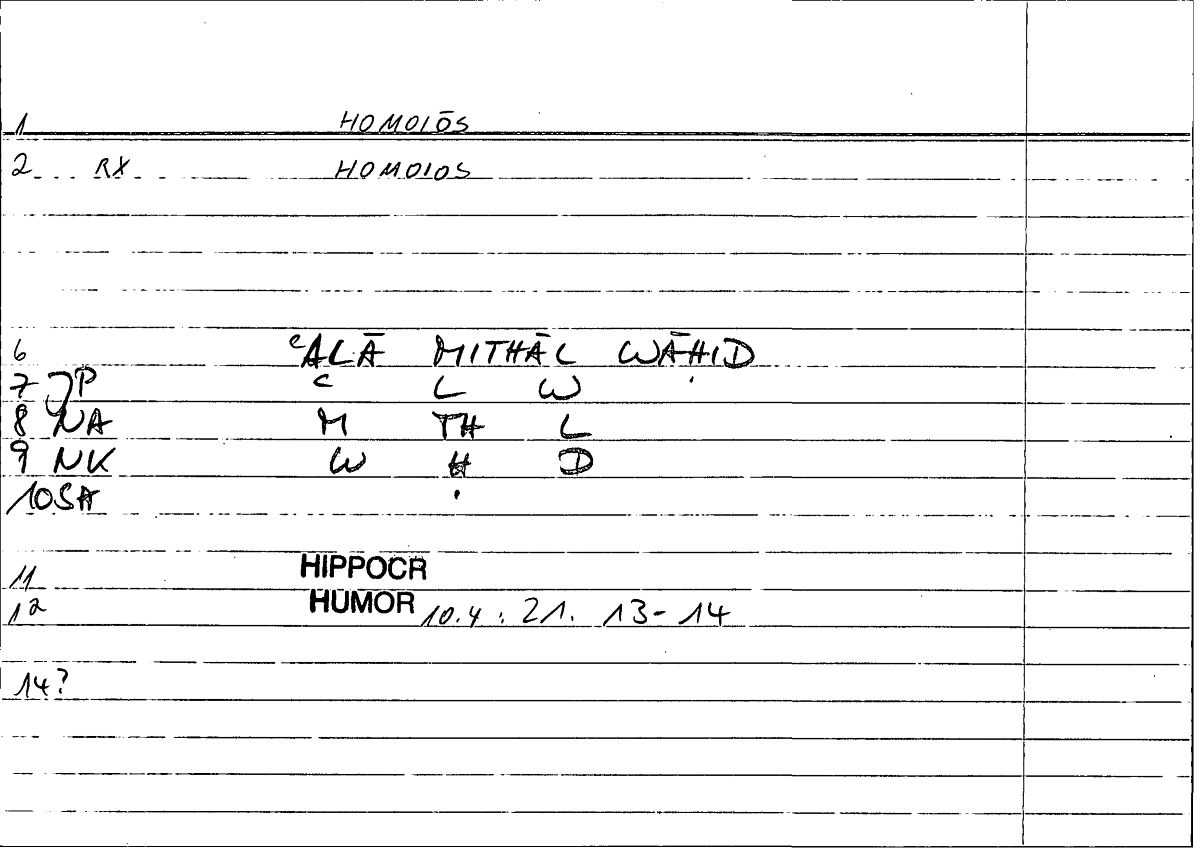 1 HOMOIŌS
2 RX HOMOIOS
6 ᶜALĀ MITHĀL WĀḤID
7 JP C L W
8 NA M TH L
9 NK W Ḥ D
10 SA
11 HIPPOCR
12 HUMOR 10.4 : 21. 13-14
14?